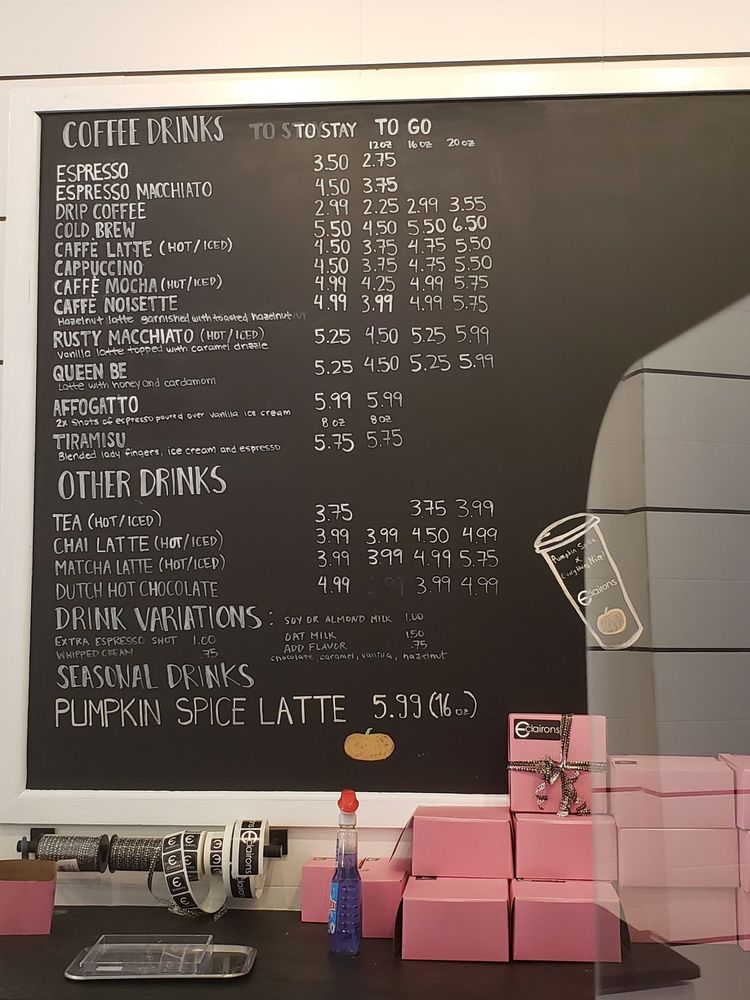 COFFEE DRINKS TO S TO STAY TO GO
12oz 16oz 20oz
ESPRESSO 3.50 2.75
ESPRESSO MACCHIATO 4.50 3.75
DRIP COFFEE 2.99 2.25 2.99 3.55
COLD BREW 5.50 4.50 5.50 6.50
CAFFE LATTE (HOT/ICED) 4.50 3.75 4.75 5.50
CAPPUCCINO 4.50 3.75 4.75 5.50
CAFFÈ MOCHA (HOT/ICED) 4.99 4.25 4.99 5.75
CAFFÈ NOISETTE 4.99 3.99 4.99 5.75
Hazelnut latte garnished with toasted hazelnut
RUSTY MACCHIATO (HOT/ICED) 5.25 4.50 5.25 5.99
Vanilla latte topped with caramel drizzle
QUEEN BE 5.25 4.50 5.25 5.99
Latte with honey and cardamom
AFFOGATTO 5.99 5.99
2x Shots of espresso poured over vanilla ice cream 8 oz 8oz
TIRAMISU 5.75 5.75
Blended lady fingers, ice cream and espresso
OTHER DRINKS
TEA (HOT/ICED) 3.75 375 3.99
CHAI LATTE (HOT/ICED) 3.99 3.99 4.50 4.99
MATCHA LATTE (HOT/ICED) 3.99 3.99 4.99 5.75
DUTCH HOT CHOCOLATE 4.99 3.99 4.99
DRINK VARIATIONS: SOY OR ALMOND MILK 1.00
EXTRA ESPRESSO SHOT 1.00 OAT MILK 1.50
WHIPPED CREAM .75 ADD FLAVOR .75
chocolate, caramel, vanilla, hazelnut
SEASONAL DRINKS
PUMPKIN SPICE LATTE 5.99 (16oz)
Pumpkin Spice
x
Everything Nice!
Eclairons
Eclairons
Eclairons